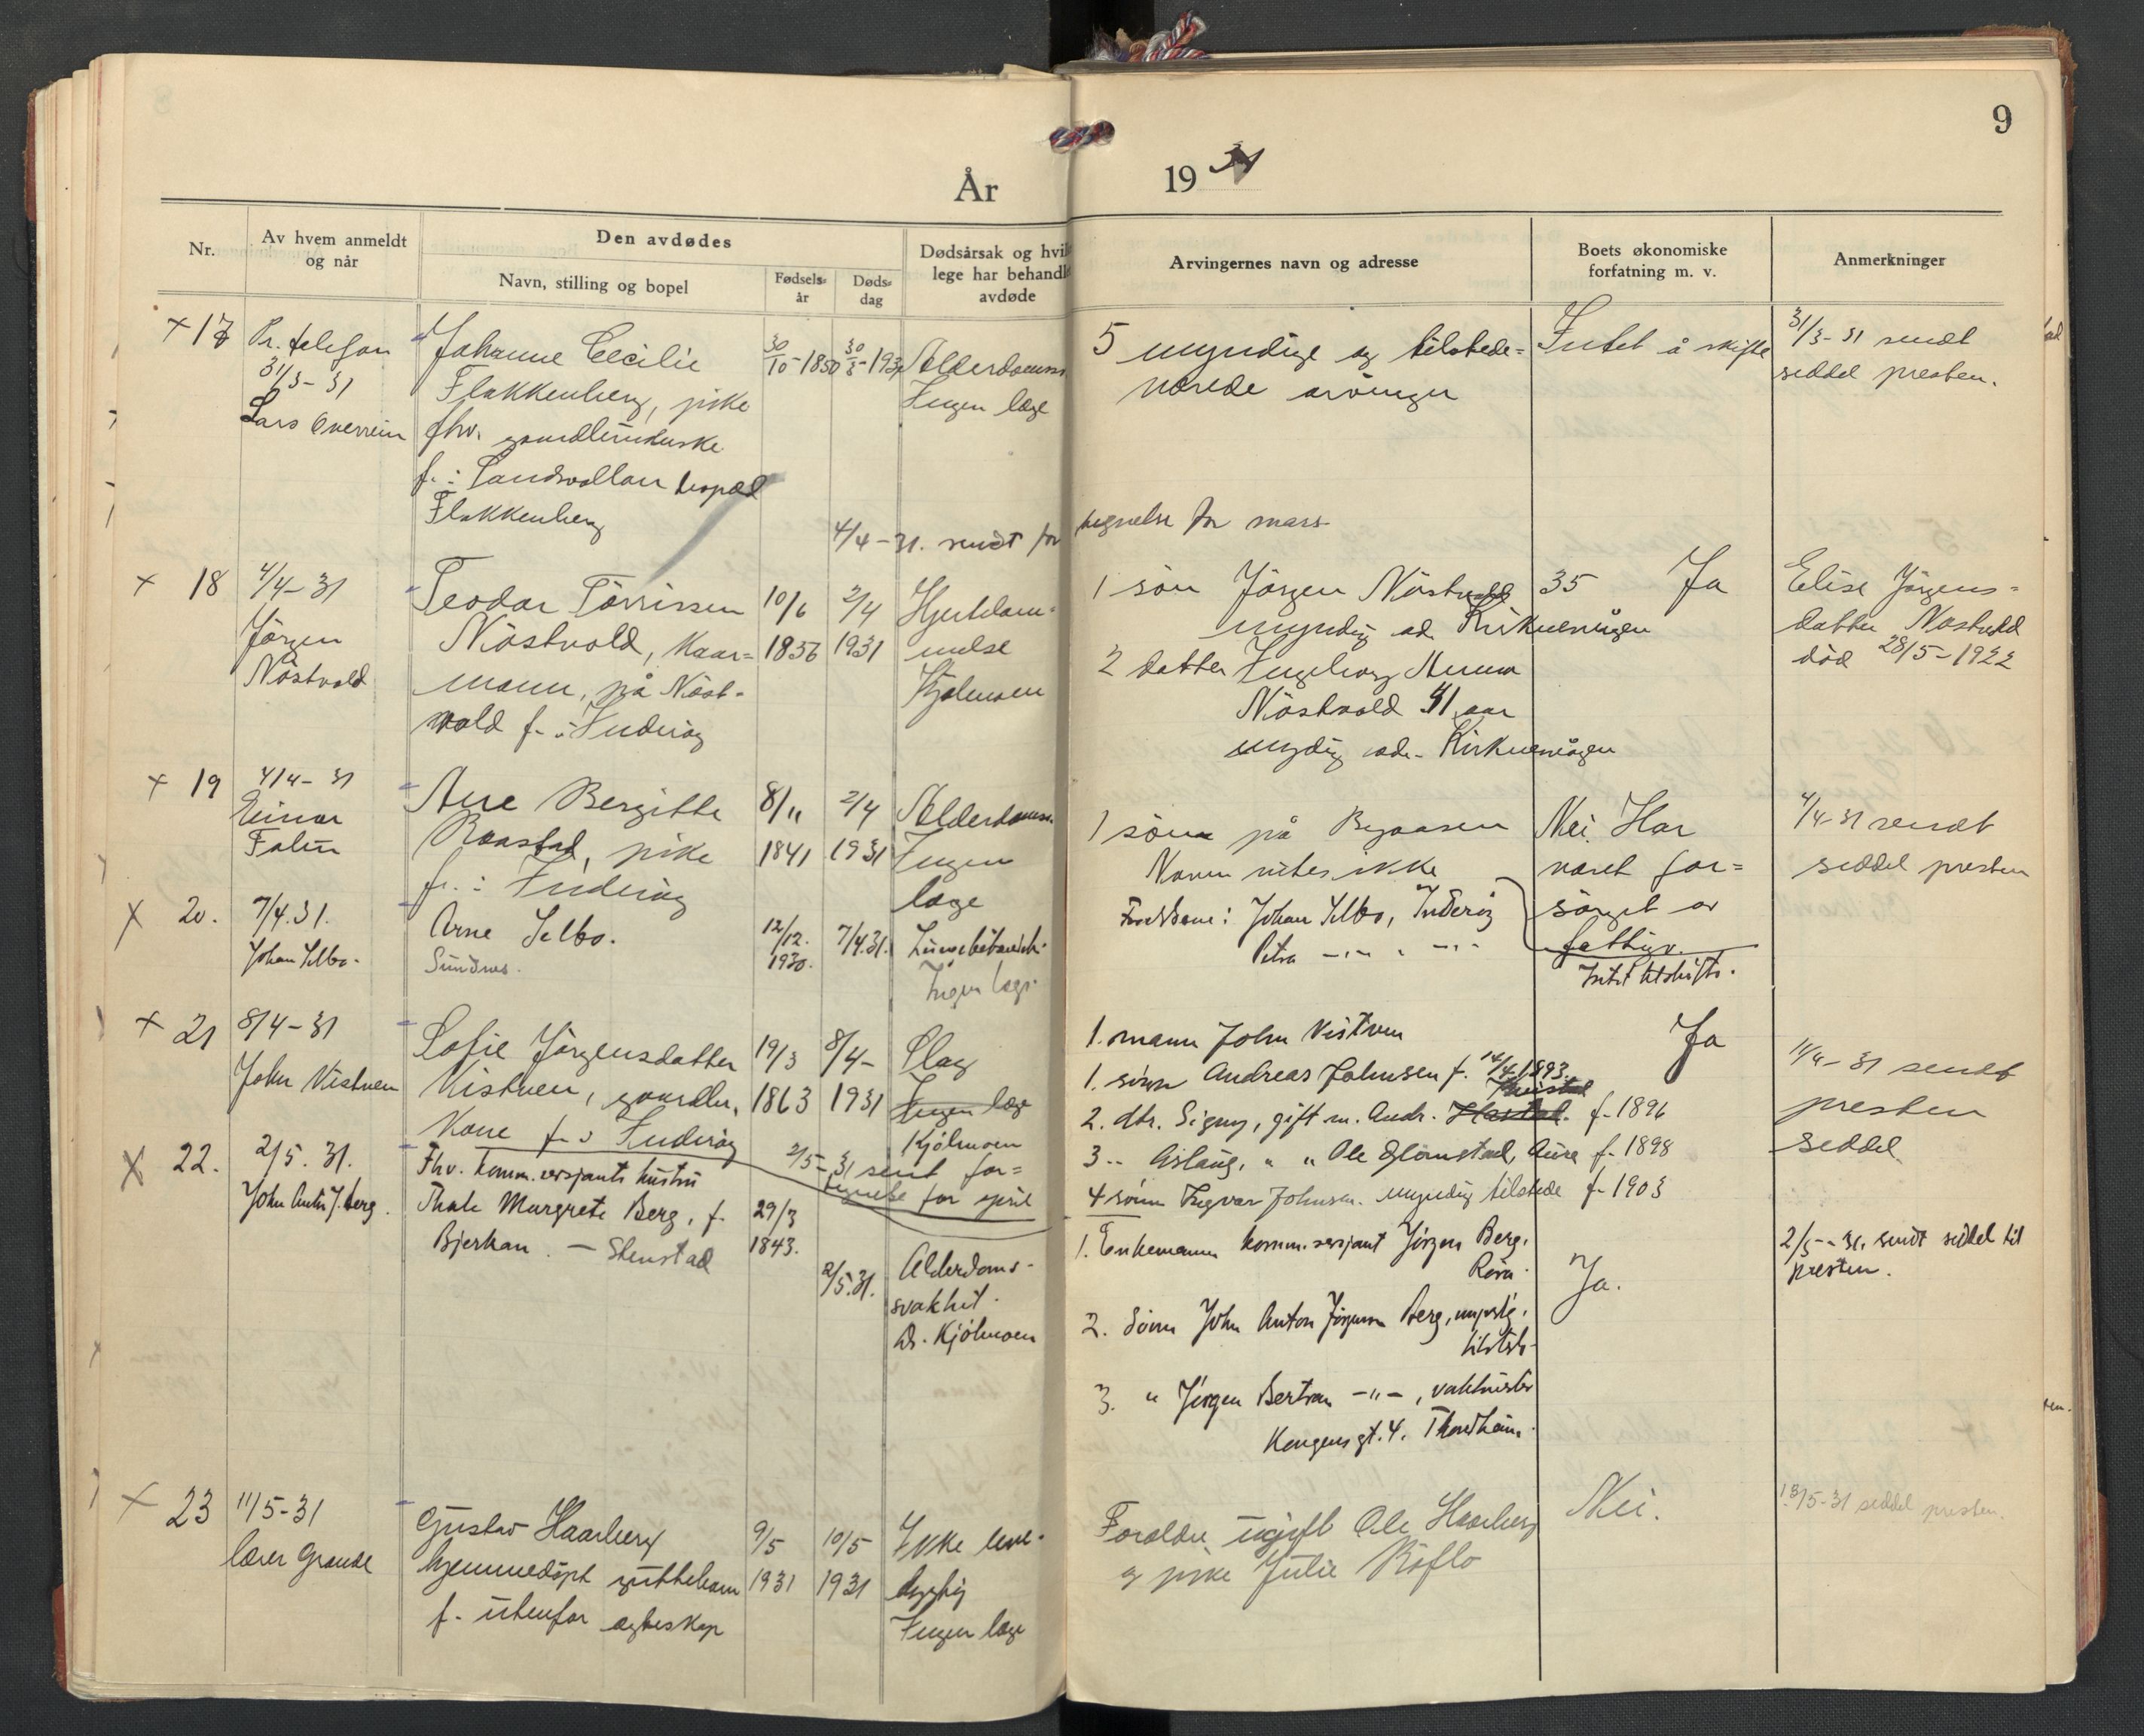 9
År 1931
Nr.
Av hvem anmeldt
og når
Den avdødes
Navn, stilling og bopel
Fødsels-
år
Døds-
dag
Dødsårsak og hvil
lege har behandl
avdøde
Arvingernes navn og adresse
Boets økonomiske
forfatning m. v.
Anmerkninger
+ 17
Pr. telefon
31/3 - 31
Lars Overrein
Johanne Cecilie
Flakkenberg, pike
fhv. gaardbrukerske
f. : Sandvollan bopæl
Flakkenberg
30/10 - 1850
30/3 - 1931
Alderdomss
Ingen læge
5 myndige og tilstede=
værede arvinger
Intet å skifte
31/3 - 31 sendt
seddel presten.
4/4 - 31. sendt for
tegnelse for mars
+ 18
4/4 - 31
Jörgen
Nöstvold
Teodor Törrissen
Nöstvold, Kaar=
mann, på Nöst-
vold f. : Inderöy
10/6
1856
2/4
1931
Hjertelam-
melse
Kjølmoen
1 sön Jörgen Nöstvold 35
myndig ad. Kirknesvågen
2 datter Ingeborg Anna
Nöstvold 41 aar
myndig adr. Kirknesvågen
Ja
Elise Jörgens=
datter Nöstvold
död 28/5 - 1922
+ 19
4/4 - 31
Einar
Falin
Ane Bergitte
Raastad, pike
f. : Inderöy
8/11
1841
2/4
1931
Alderdomss.
Ingen
læge
1 sönn på Byaasen
Navn vites ikke
Nei. Har
været for=
sörget av
fattigv.
4/4 - 31 sendt
seddel presten
+ 20.
7/4.31.
Johan Selbo.
Arne Selbo.
Sundnes.
12/12.
1930.
7/4.31.
Ingen læge.
Foreldrene: Johan Selbo, Inderöy
Petra -"- " -"-
Intet til skifte.
+ 21
8/4 - 31
John Vistven
Sofie Jörgensdatter
Vistven, gaardbr.
Kone f. : Inderöy
19/3
1863
8/4 -
1931
Slag
Ingen læge
Kjölmoen
1. mann John Vistven
1. sönn Andreas Johnsen f. 14/4 1893.
2. dtr. Signy, gift m. Andr. f. 1896
3 -- Aslaug, " " Ole Glömstad, Aure f. 1898
4 sönn Ingvar Johnsen. myndig tilstede f. 1903
Ja
11/4 - 31 sendt
presten
seddel
2/5 - 31 sendt for=
tegnelse for april
+ 22.
2/5. 31.
John Anton J. Berg.
Fhv. komm. versjants hustru
Margrete Berg, f.
Bjerkan. - Stenstad
29/3
1843.
2/5.31.
Alderdoms-
svakhet.
Dr. Kjölmoen
1. Enkemann komm. versjant Jörgen Berg,
Röra.
2. Sönn John Anton Jörgensen Berg, myndig,
tilstede.
3. " Jörgen Bertran -"- , vaktmester
Kongensgt. 4. Trondheim.
Ja.
2/5 - 31. sendt seddel til
presten.
+ 23
11/5 - 31
lærer Grande
Gustav Haarberg
hjemmedöpt guttebarn
f. utenfor egteskap
9/5
1931
10/5
1931
Ikke leve-
dygtig
Ingen læge
Foreldre ugift Ole Haarberg
og pike Julie Röflo
Nei.
13/5 - 31 seddel presten.